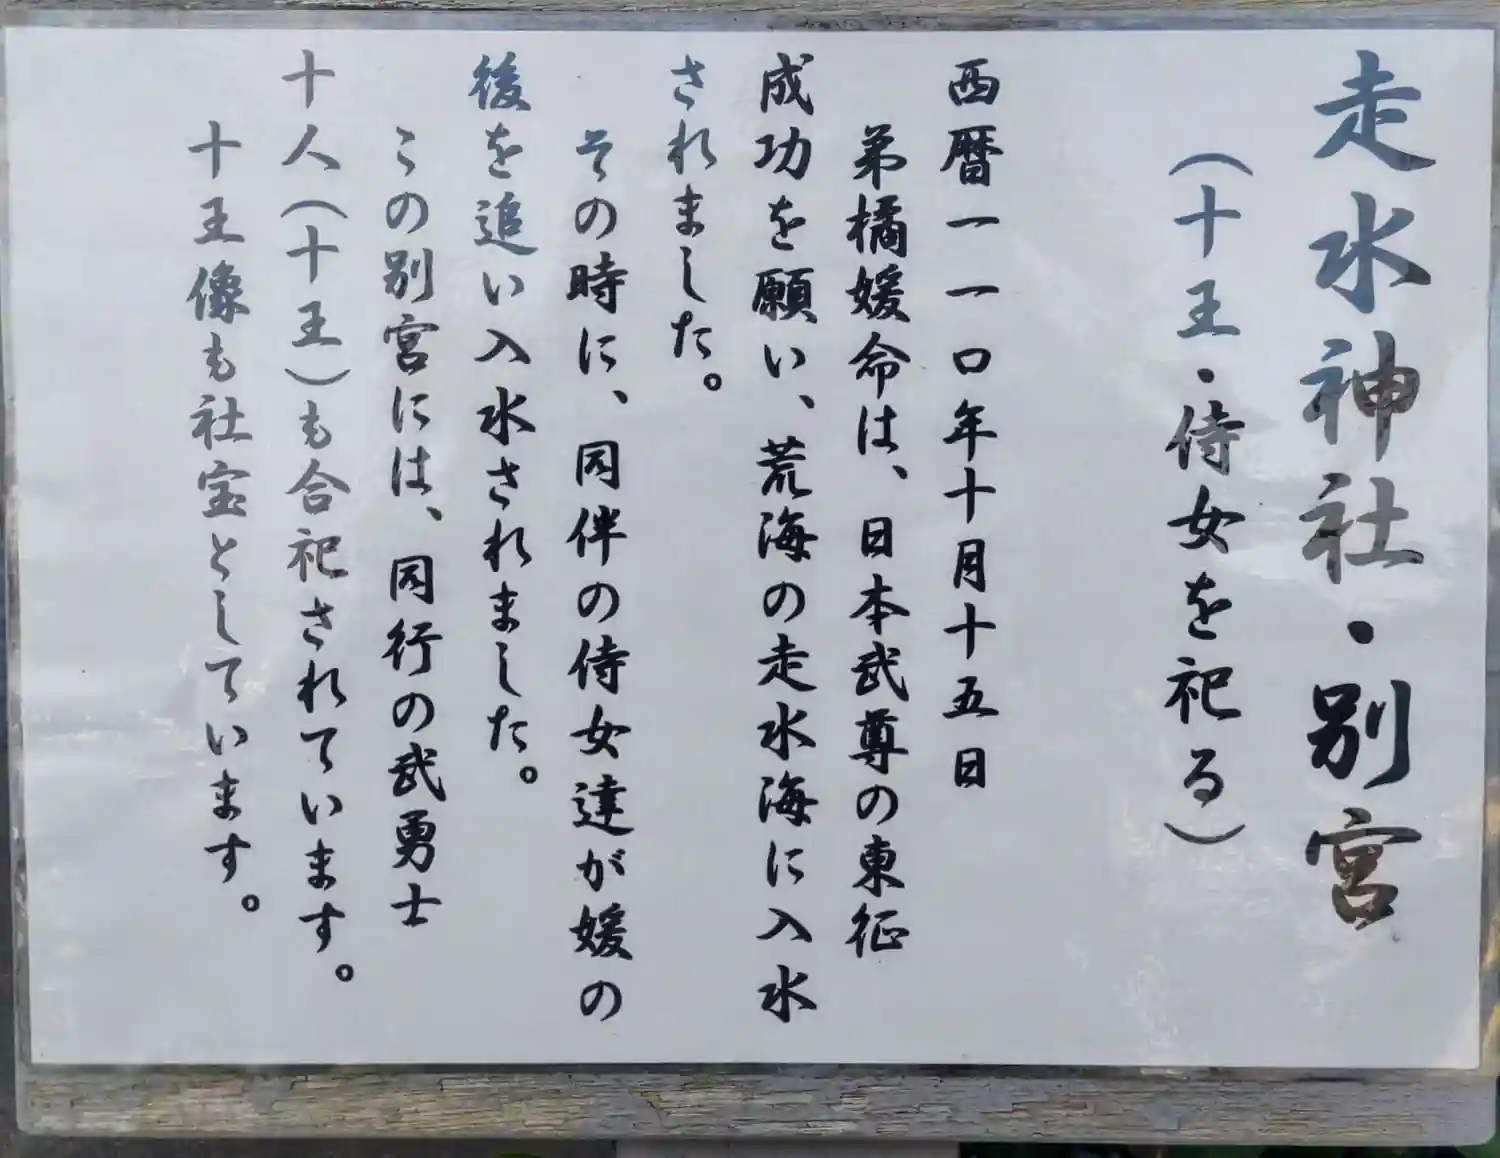 走水神社・別宮
（十王・侍女を祀る）
西暦一一〇年十月十五日
弟橘媛命は、日本武尊の東征
成功を願い、荒海の走水海に入水
されました。
その時に、同伴の侍女達が媛の
後を追い入水されました。
この別宮には、同行の武勇士
十人（十王）も合祀されています。
十王像も社宝としています。